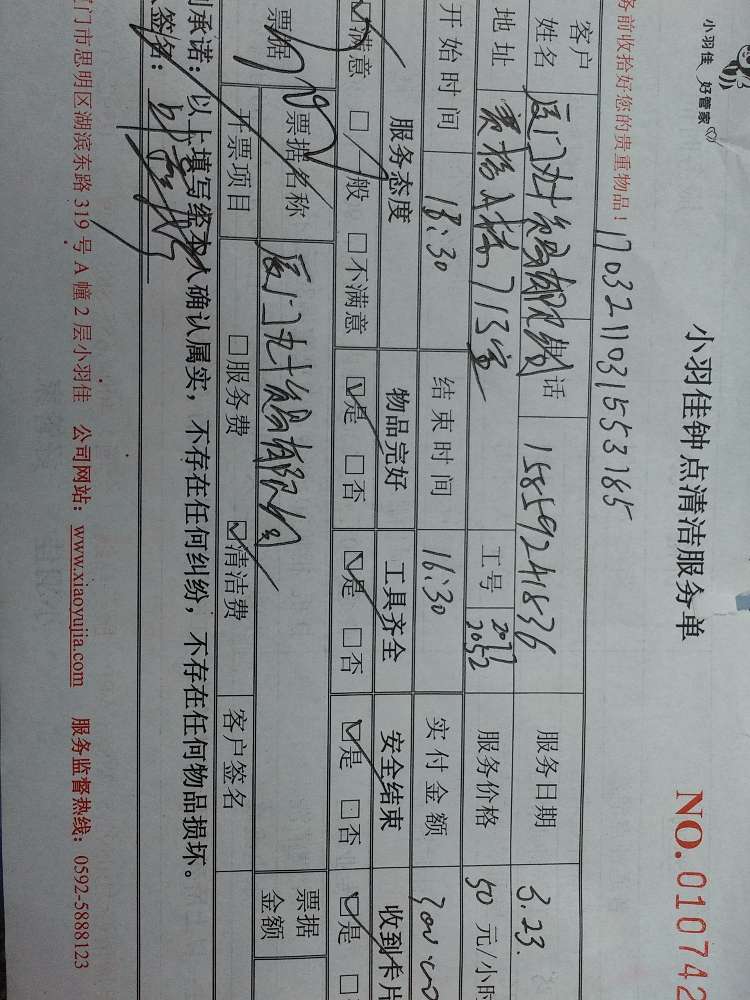 小羽佳 好管家
小羽佳钟点清洁服务单
NO.010742
务前收拾好您的贵重物品！
1703211031553785
客户姓名 电话 15859241836 服务日期 3.23.
地址 A栋713室 工号 2052 服务价格 50 元/小时
开始时间 13:30 结束时间 16:30 实付金额 300.00
服务态度 物品完好 工具齐全 安全结束 收到卡片
☑满意 □一般 □不满意 ☑是 □否 ☑是 □否 ☑是 □否 ☑是 □
票据 票据名称 票据金额
开票项目 □服务费 ☑清洁费 客户签名
承诺：以上填写经本人确认属实，不存在任何纠纷，不存在任何物品损坏。
签名：
门市思明区湖滨东路 319 号 A 幢 2 层小羽佳 公司网站：www.xiaoyujia.com 服务监督热线：0592-5888123